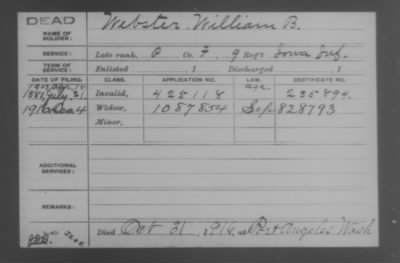 DEAD
NAME OF SOLDIER: Webster, William B.
SERVICE: Late rank, P Co. F, 9 Reg't Iowa Inf.
TERM OF SERVICE: Enlisted , 1 Discharged , 1
DATE OF FILING. CLASS. APPLICATION NO. LAW. CERTIFICATE NO.
1881 July 31 Invalid, 425118 age. 235894.
4 Widow, 1087854 828793
Minor,
ADDITIONAL SERVICES:
REMARKS:
Died Oct 31, 1916, at Port Angeles Wash